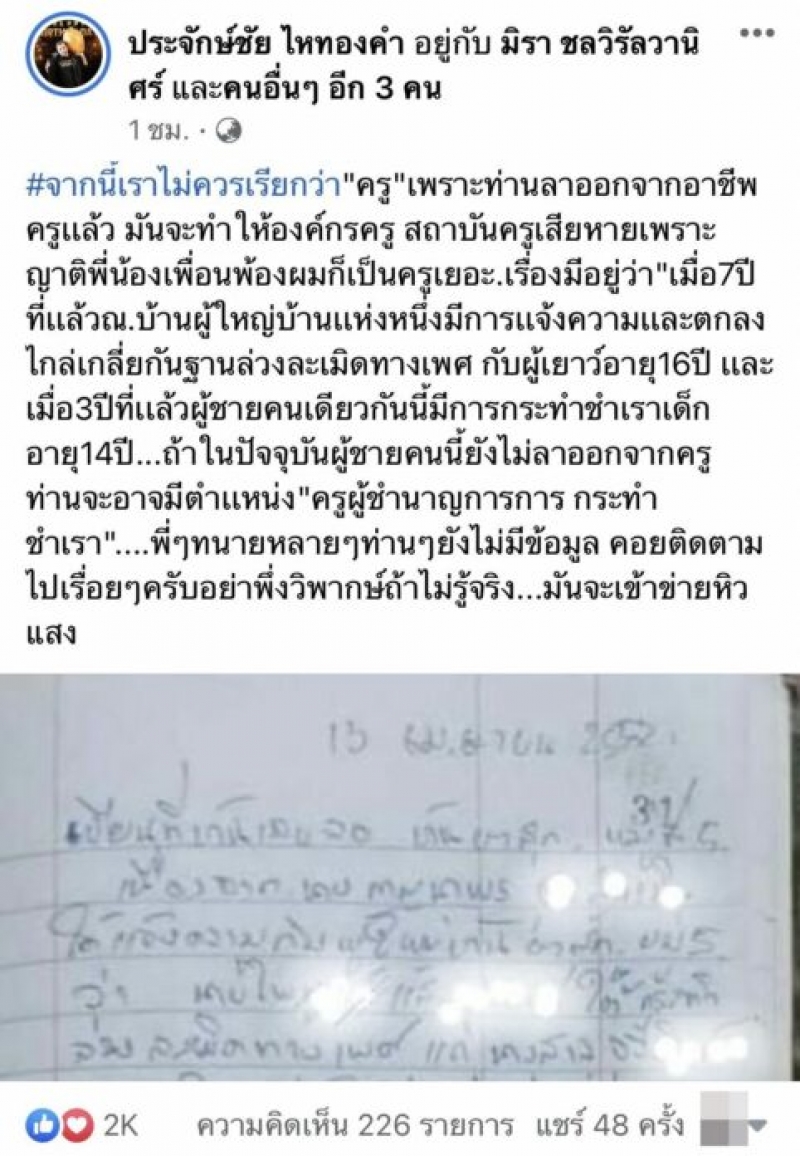 ประจักษ์ชัย ไหทองคำ อยู่กับ มิรา ชลวิรัลวานิ
ศร์ และคนอื่นๆ อีก 3 คน
1 ชม. ·
#จากนี้เราไม่ควรเรียกว่า"ครู"เพราะท่านลาออกจากอาชีพ
ครูแล้ว มันจะทำให้องค์กรครู สถาบันครูเสียหายเพราะ
ญาติพี่น้องเพื่อนพ้องผมก็เป็นครูเยอะ.เรื่องมีอยู่ว่า"เมื่อ7ปี
ที่แล้วณ.บ้านผู้ใหญ่บ้านแห่งหนึ่งมีการแจ้งความและตกลง
ไกล่เกลี่ยกันฐานล่วงละเมิดทางเพศ กับผู้เยาว์อายุ16ปี และ
เมื่อ3ปีที่แล้วผู้ชายคนเดียวกันนี้มีการกระทำชำเราเด็ก
อายุ14ปี...ถ้าในปัจจุบันผู้ชายคนนี้ยังไม่ลาออกจากครู
ท่านจะอาจมีตำแหน่ง"ครูผู้ชำนาญการการ กระทำ
ชำเรา"....พี่ๆทนายหลายๆท่านๆยังไม่มีข้อมูล คอยติดตาม
ไปเรื่อยๆครับอย่าพึ่งวิพากษ์ถ้าไม่รู้จริง...มันจะเข้าข่ายหิว
แสง
13 เมษายน
เขียนที่
เนื่องจาก นาย
ได้แจ้งความกับผู้ใหญ่บ้าน
ว่า ได้กระทำ
ล่วงละเมิดทางเพศ แก่ นางสาว
2K ความคิดเห็น 226 รายการ แชร์ 48 ครั้ง